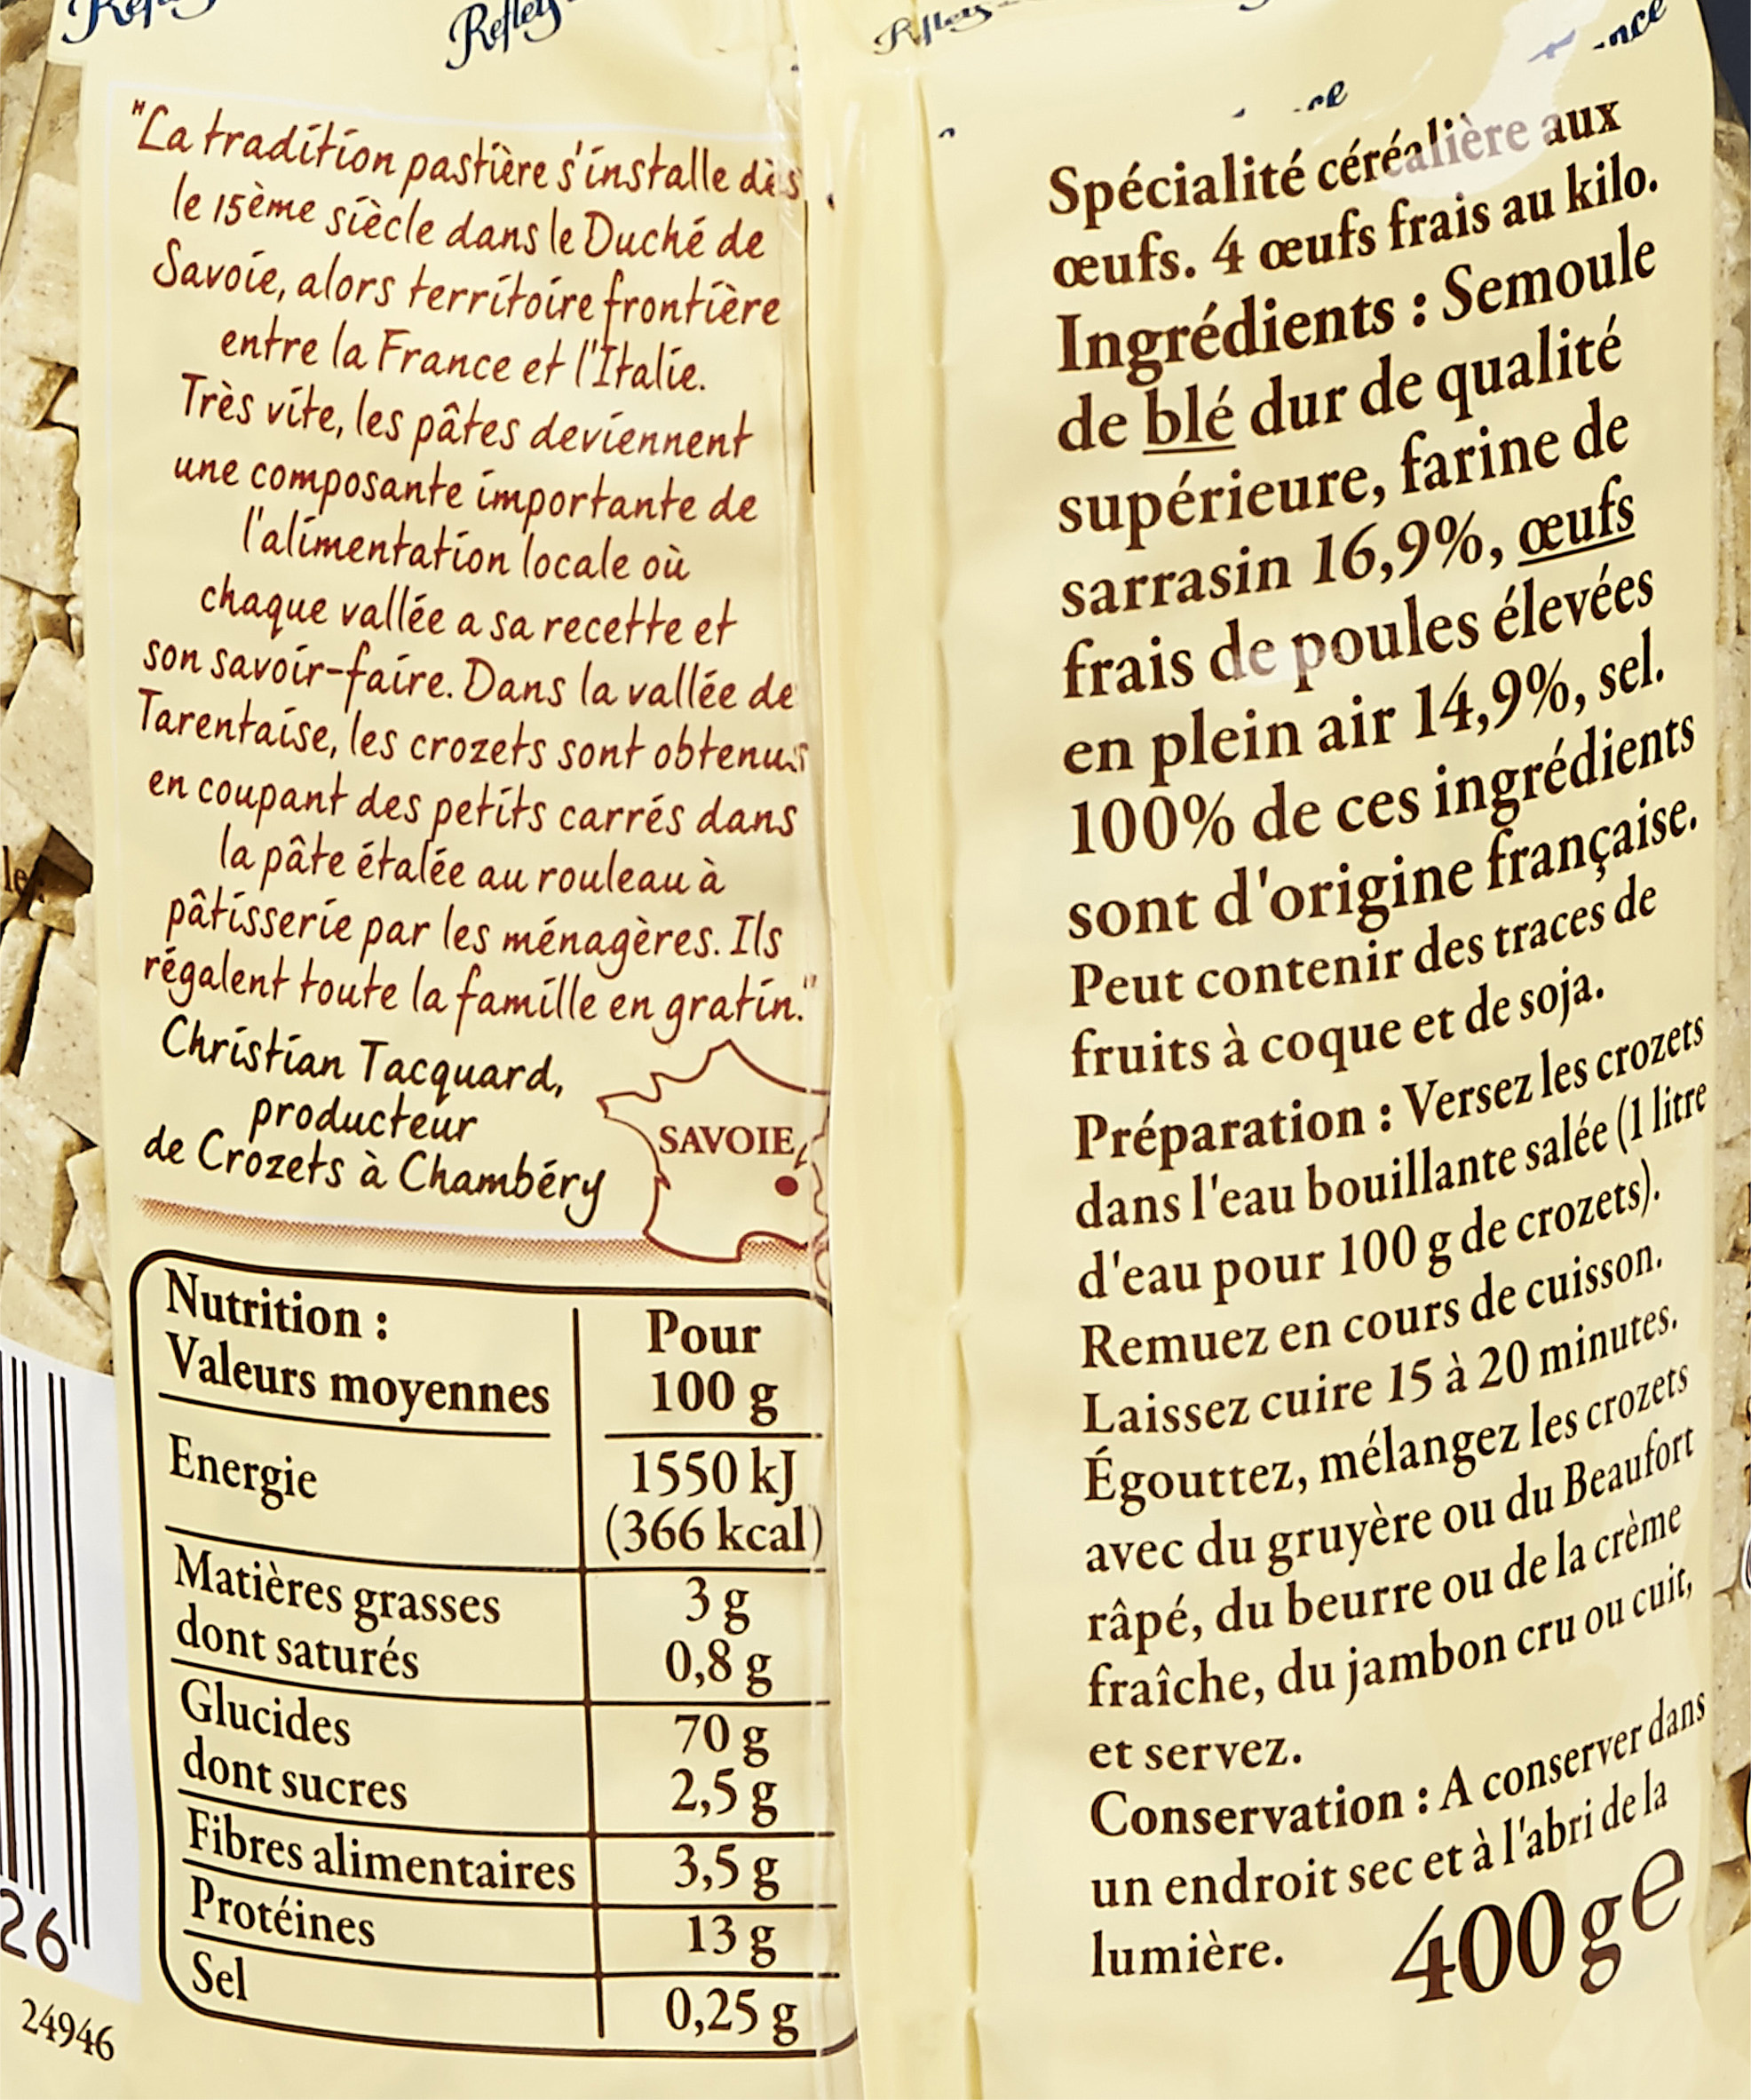 Reflets
"La tradition pastière s'installe dès
le 15ème siècle dans le Duché de
Savoie, alors territoire frontière
entre la France et l'Italie.
Très vite, les pâtes deviennent
une composante importante de
l'alimentation locale où
chaque vallée a sa recette et
son savoir-faire. Dans la vallée de
Tarentaise, les crozets sont obtenus
en coupant des petits carrés dans
la pâte étalée au rouleau à
pâtisserie par les ménagères. Ils
régalent toute la famille en gratin."
Christian Tacquard,
producteur
de Crozets à Chambéry
SAVOIE
Nutrition :
Valeurs moyennes
Pour
100 g
Energie
1550 kJ
(366 kcal)
Matières grasses 3 g
dont saturés 0,8 g
Glucides 70 g
dont sucres 2,5 g
Fibres alimentaires 3,5 g
Protéines 13 g
Sel 0,25 g
26
24946
Spécialité céréalière aux
œufs. 4 œufs frais au kilo.
Ingrédients : Semoule
de blé dur de qualité
supérieure, farine de
sarrasin 16,9%, œufs
frais de poules élevées
en plein air 14,9%, sel.
100% de ces ingrédients
sont d'origine française.
Peut contenir des traces de
fruits à coque et de soja.
Préparation : Versez les crozets
dans l'eau bouillante salée (1 litre
d'eau pour 100 g de crozets).
Remuez en cours de cuisson.
Laissez cuire 15 à 20 minutes.
Égouttez, mélangez les crozets
avec du gruyère ou du Beaufort
râpé, du beurre ou de la crème
fraîche, du jambon cru ou cuit,
et servez.
Conservation : A conserver dans
un endroit sec et à l'abri de la
lumière.
400 g e